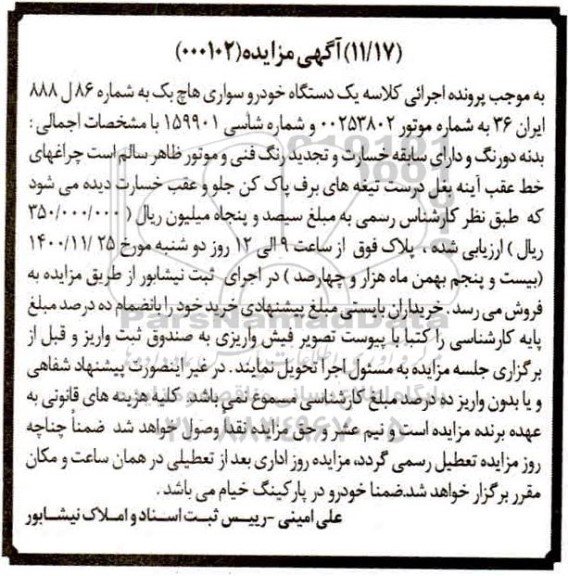 (۱۱/۱۷) آگهی مزایده (۰۰۰۱۰۲)
به موجب پرونده اجرائی کلاسه یک دستگاه خودرو سواری هاچ بک به شماره ۸۶ ل ۸۸۸
ایران ۳۶ به شماره موتور ۰۰۲۵۳۸۰۲ و شماره شاسی ۱۵۹۹۰۱ با مشخصات اجمالی :
بدنه دورنگ و دارای سابقه خسارت و تجدید رنگ فنی و موتور ظاهر سالم است چراغهای
خط عقب آینه بغل درست تیغه های برف پاک کن جلو و عقب خسارت دیده می شود
که طبق نظر کارشناس رسمی به مبلغ سیصد و پنجاه میلیون ریال ( ۳۵۰/۰۰۰/۰۰۰
ریال ) ارزیابی شده ، پلاک فوق از ساعت ۹ الی ۱۲ روز دو شنبه مورخ ۲۵ /۱۴۰۰/۱۱
(بیست و پنجم بهمن ماه هزار و چهارصد ) در اجرای ثبت نیشابور از طریق مزایده به
فروش می رسد . خریداران بایستی مبلغ پیشنهادی خرید خود را بانضمام ده درصد مبلغ
پایه کارشناسی را کتباً با پیوست تصویر فیش واریزی به صندوق ثبت واریز و قبل از
برگزاری جلسه مزایده به مسئول اجرا تحویل نمایند . در غیر اینصورت پیشنهاد شفاهی
و یا بدون واریز ده درصد مبلغ کارشناسی مسموع نمی باشد کلیه هزینه های قانونی به
عهده برنده مزایده است و نیم عشر و حق مزایده نقداً وصول خواهد شد ضمناً چناچه
روز مزایده تعطیل رسمی گردد، مزایده روز اداری بعد از تعطیلی در همان ساعت و مکان
مقرر برگزار خواهد شد.ضمنا خودرو در پارکینگ خیام می باشد .
علی امینی -رییس ثبت اسناد و املاک نیشابور
ParsNamadData